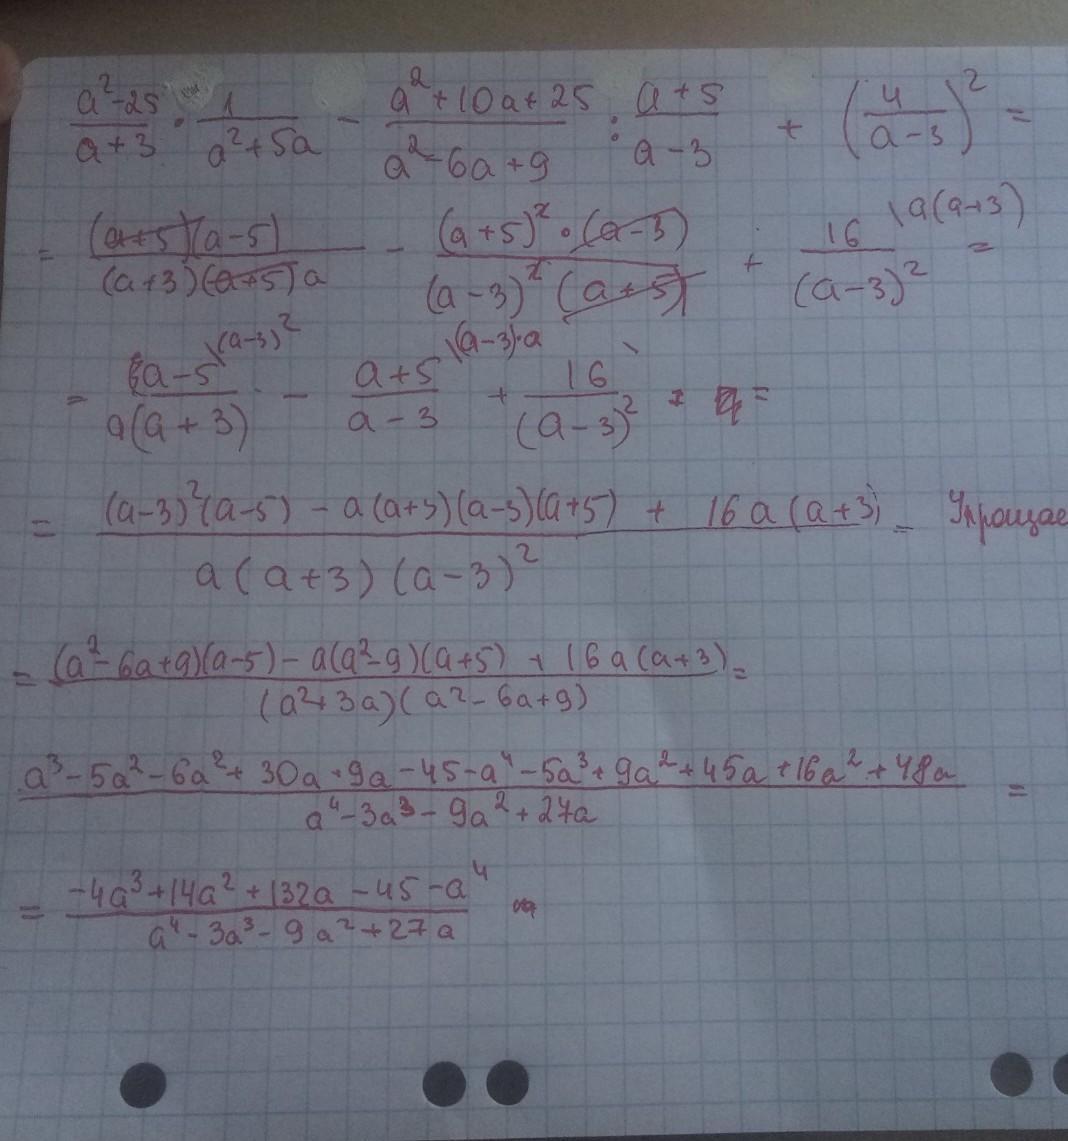 (a²-25)/(a+3) · 1/(a²+5a) - (a²+10a+25)/(a²-6a+9) : (a+5)/(a-3) + (4/(a-3))² =
= (a+5)(a-5)/((a+3)(a+5)a) - (a+5)²·(a-3)/((a-3)²(a+5)) + 16/(a-3)² \a(a+3) =
= (a-5)/(a(a+3)) \(a-3)² - (a+5)/(a-3) \(a-3)·a + 16/(a-3)² =
= ((a-3)²(a-5) - a(a+3)(a-3)(a+5) + 16a(a+3))/(a(a+3)(a-3)²) = Упрощае
= ((a²-6a+9)(a-5) - a(a²-9)(a+5) + 16a(a+3))/((a²+3a)(a²-6a+9)) =
(a³-5a²-6a²+30a+9a-45-a⁴-5a³+9a²+45a+16a²+48a)/(a⁴-3a³-9a²+27a) =
= (-4a³+14a²+132a-45-a⁴)/(a⁴-3a³-9a²+27a)